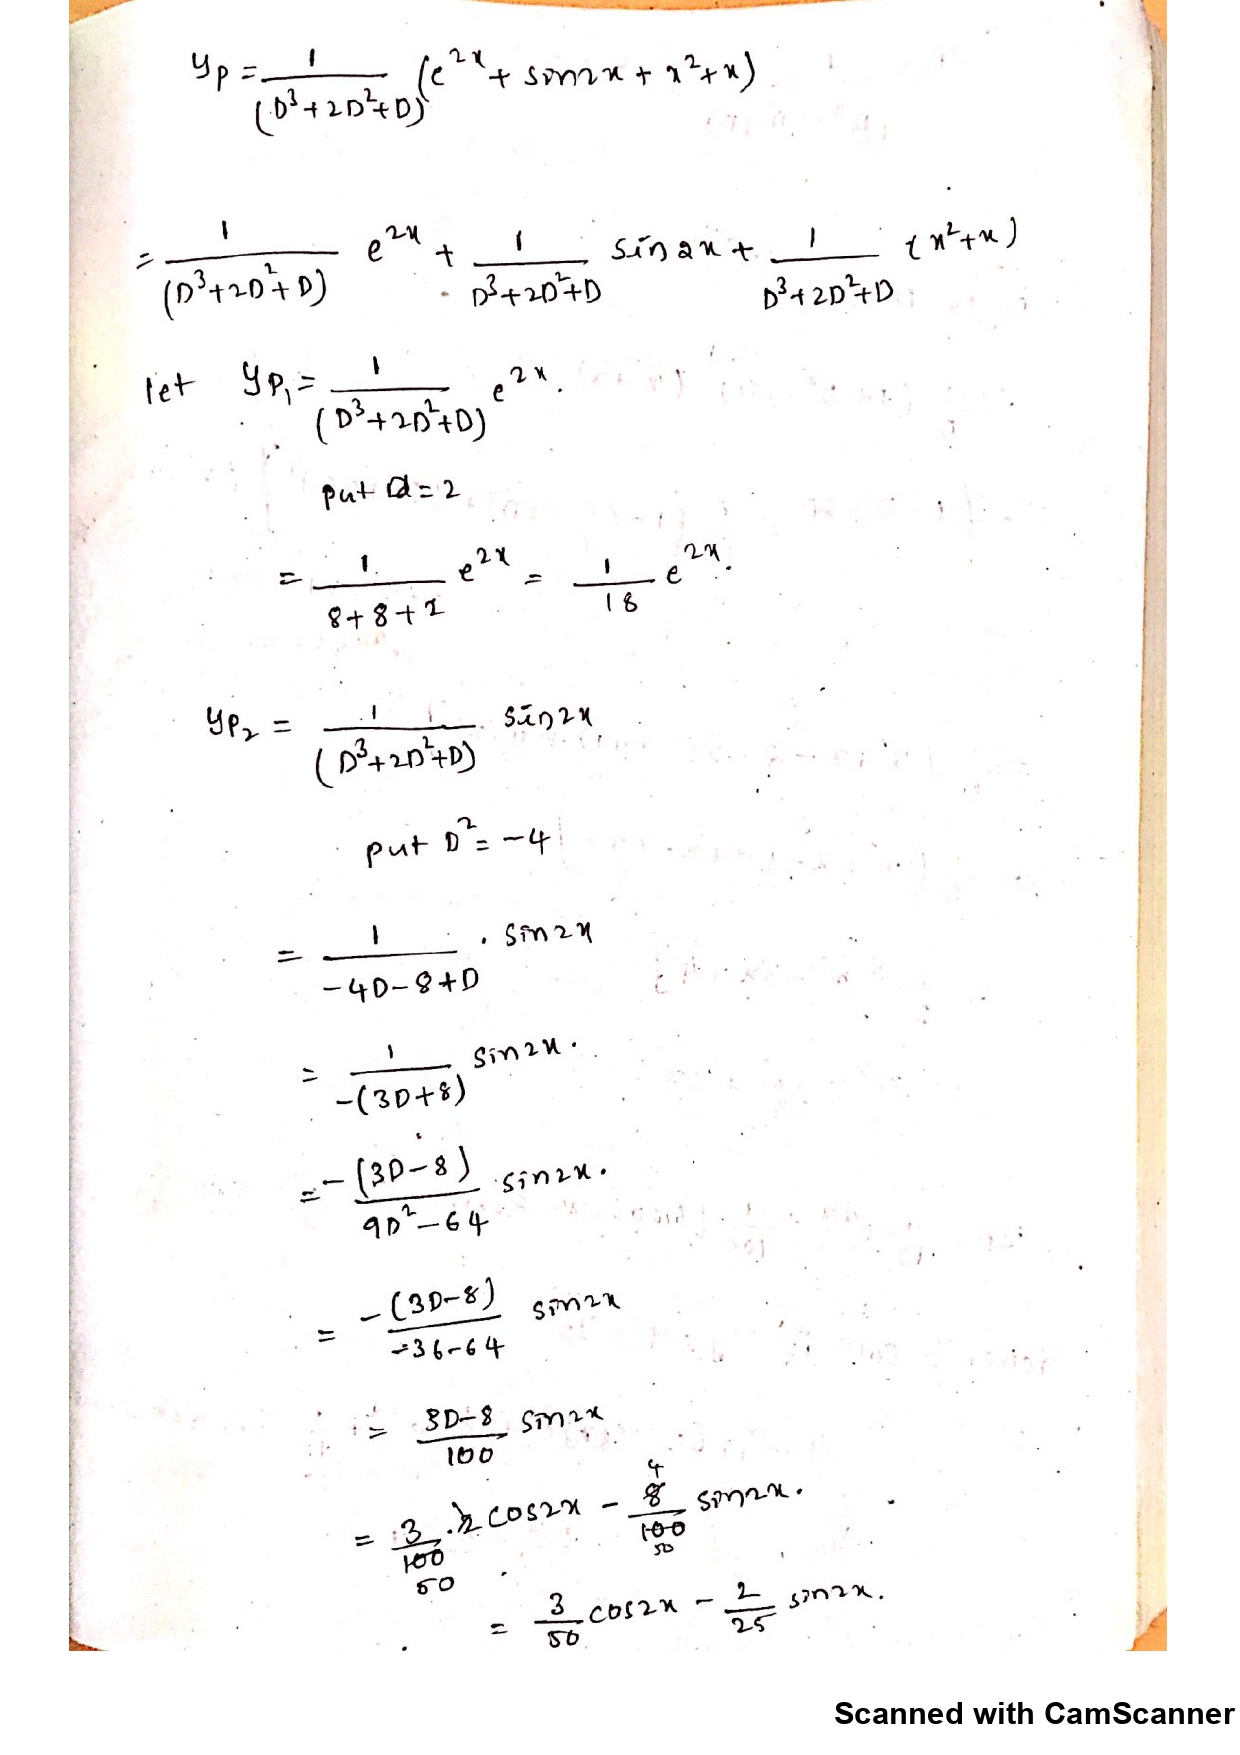 yp = 1/(D³+2D²+D) (e^2x + sin2x + x²+x)
= 1/(D³+2D²+D) e^2x + 1/D³+2D²+D sin2x + 1/D³+2D²+D (x²+x)
let yp₁ = 1/(D³+2D²+D) e^2x.
put D=2
= 1/8+8+2 e^2x = 1/18 e^2x.
yp₂ = 1/(D³+2D²+D) sin2x
put D² = -4
= 1/-4D-8+D . sin2x
= 1/-(3D+8) sin2x.
= -(3D-8)/9D²-64 sin2x.
= -(3D-8)/-36-64 sin2x
= 3D-8/100 sin2x
= 3/100 50 .2 cos2x - 8 4/100 50 sin2x.
= 3/50 cos2x - 2/25 sin2x.
Scanned with CamScanner